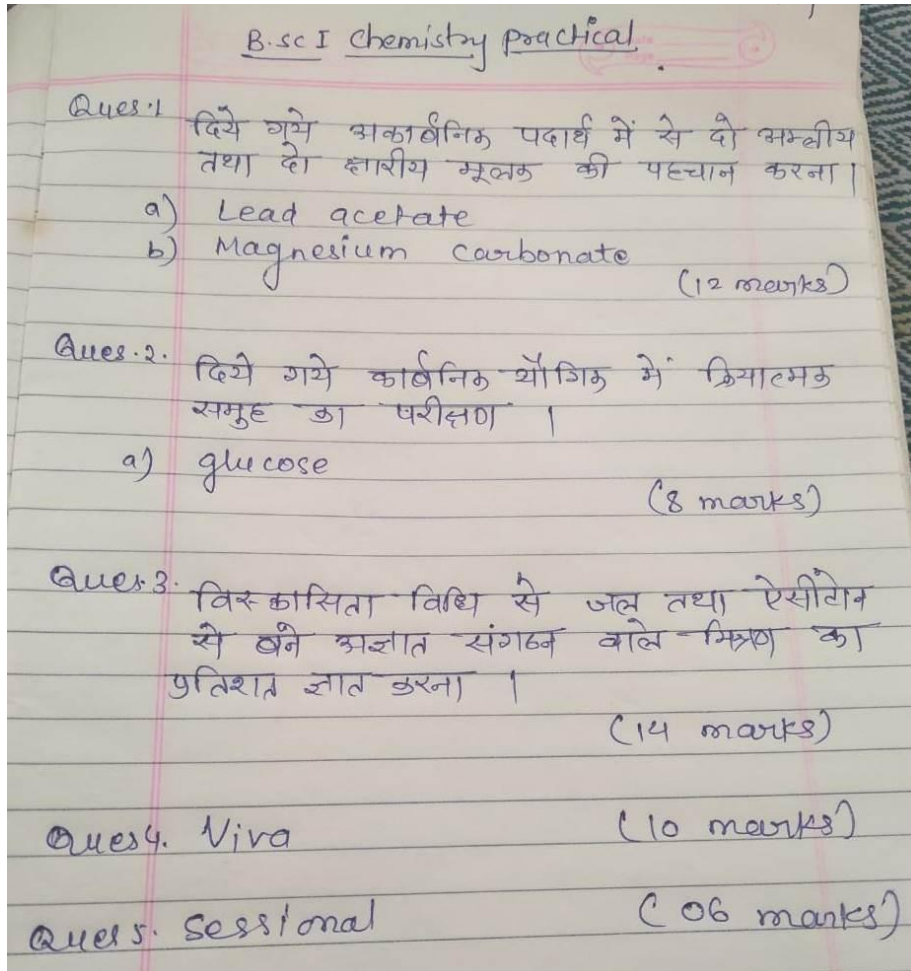 B.sc I Chemistry practical
Ques.1
दिये गये अकार्बनिक पदार्थ में से दो अम्लीय
तथा दो क्षारीय मूलक की पहचान करना।
a) Lead acetate
b) Magnesium carbonate
(12 marks)
Ques.2.
दिये गये कार्बनिक यौगिक में क्रियात्मक
समुह का परीक्षण ।
a) glucose
(8 marks)
Ques.3.
विस्कासिता विधि से जल तथा ऐसीटोन
से बने अज्ञात संगठन वाले मिश्रण का
प्रतिशत ज्ञात करना ।
(14 marks)
Ques4. Viva (10 marks)
Ques 5. Sessional (06 marks)